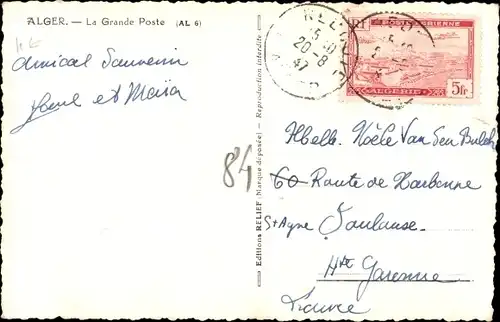 ALGER. — La Grande Poste (AL 6)
Amical Souvenir
et
84
Editions RELIEF (Marque déposée) — Reproduction interdite
15-10
20-8
47
RF POSTE AERIENNE
ALGERIE 5fr
Noële Van den Bulch
60 Route de Narbonne
St Agne Toulouse
Hte Garonne
France